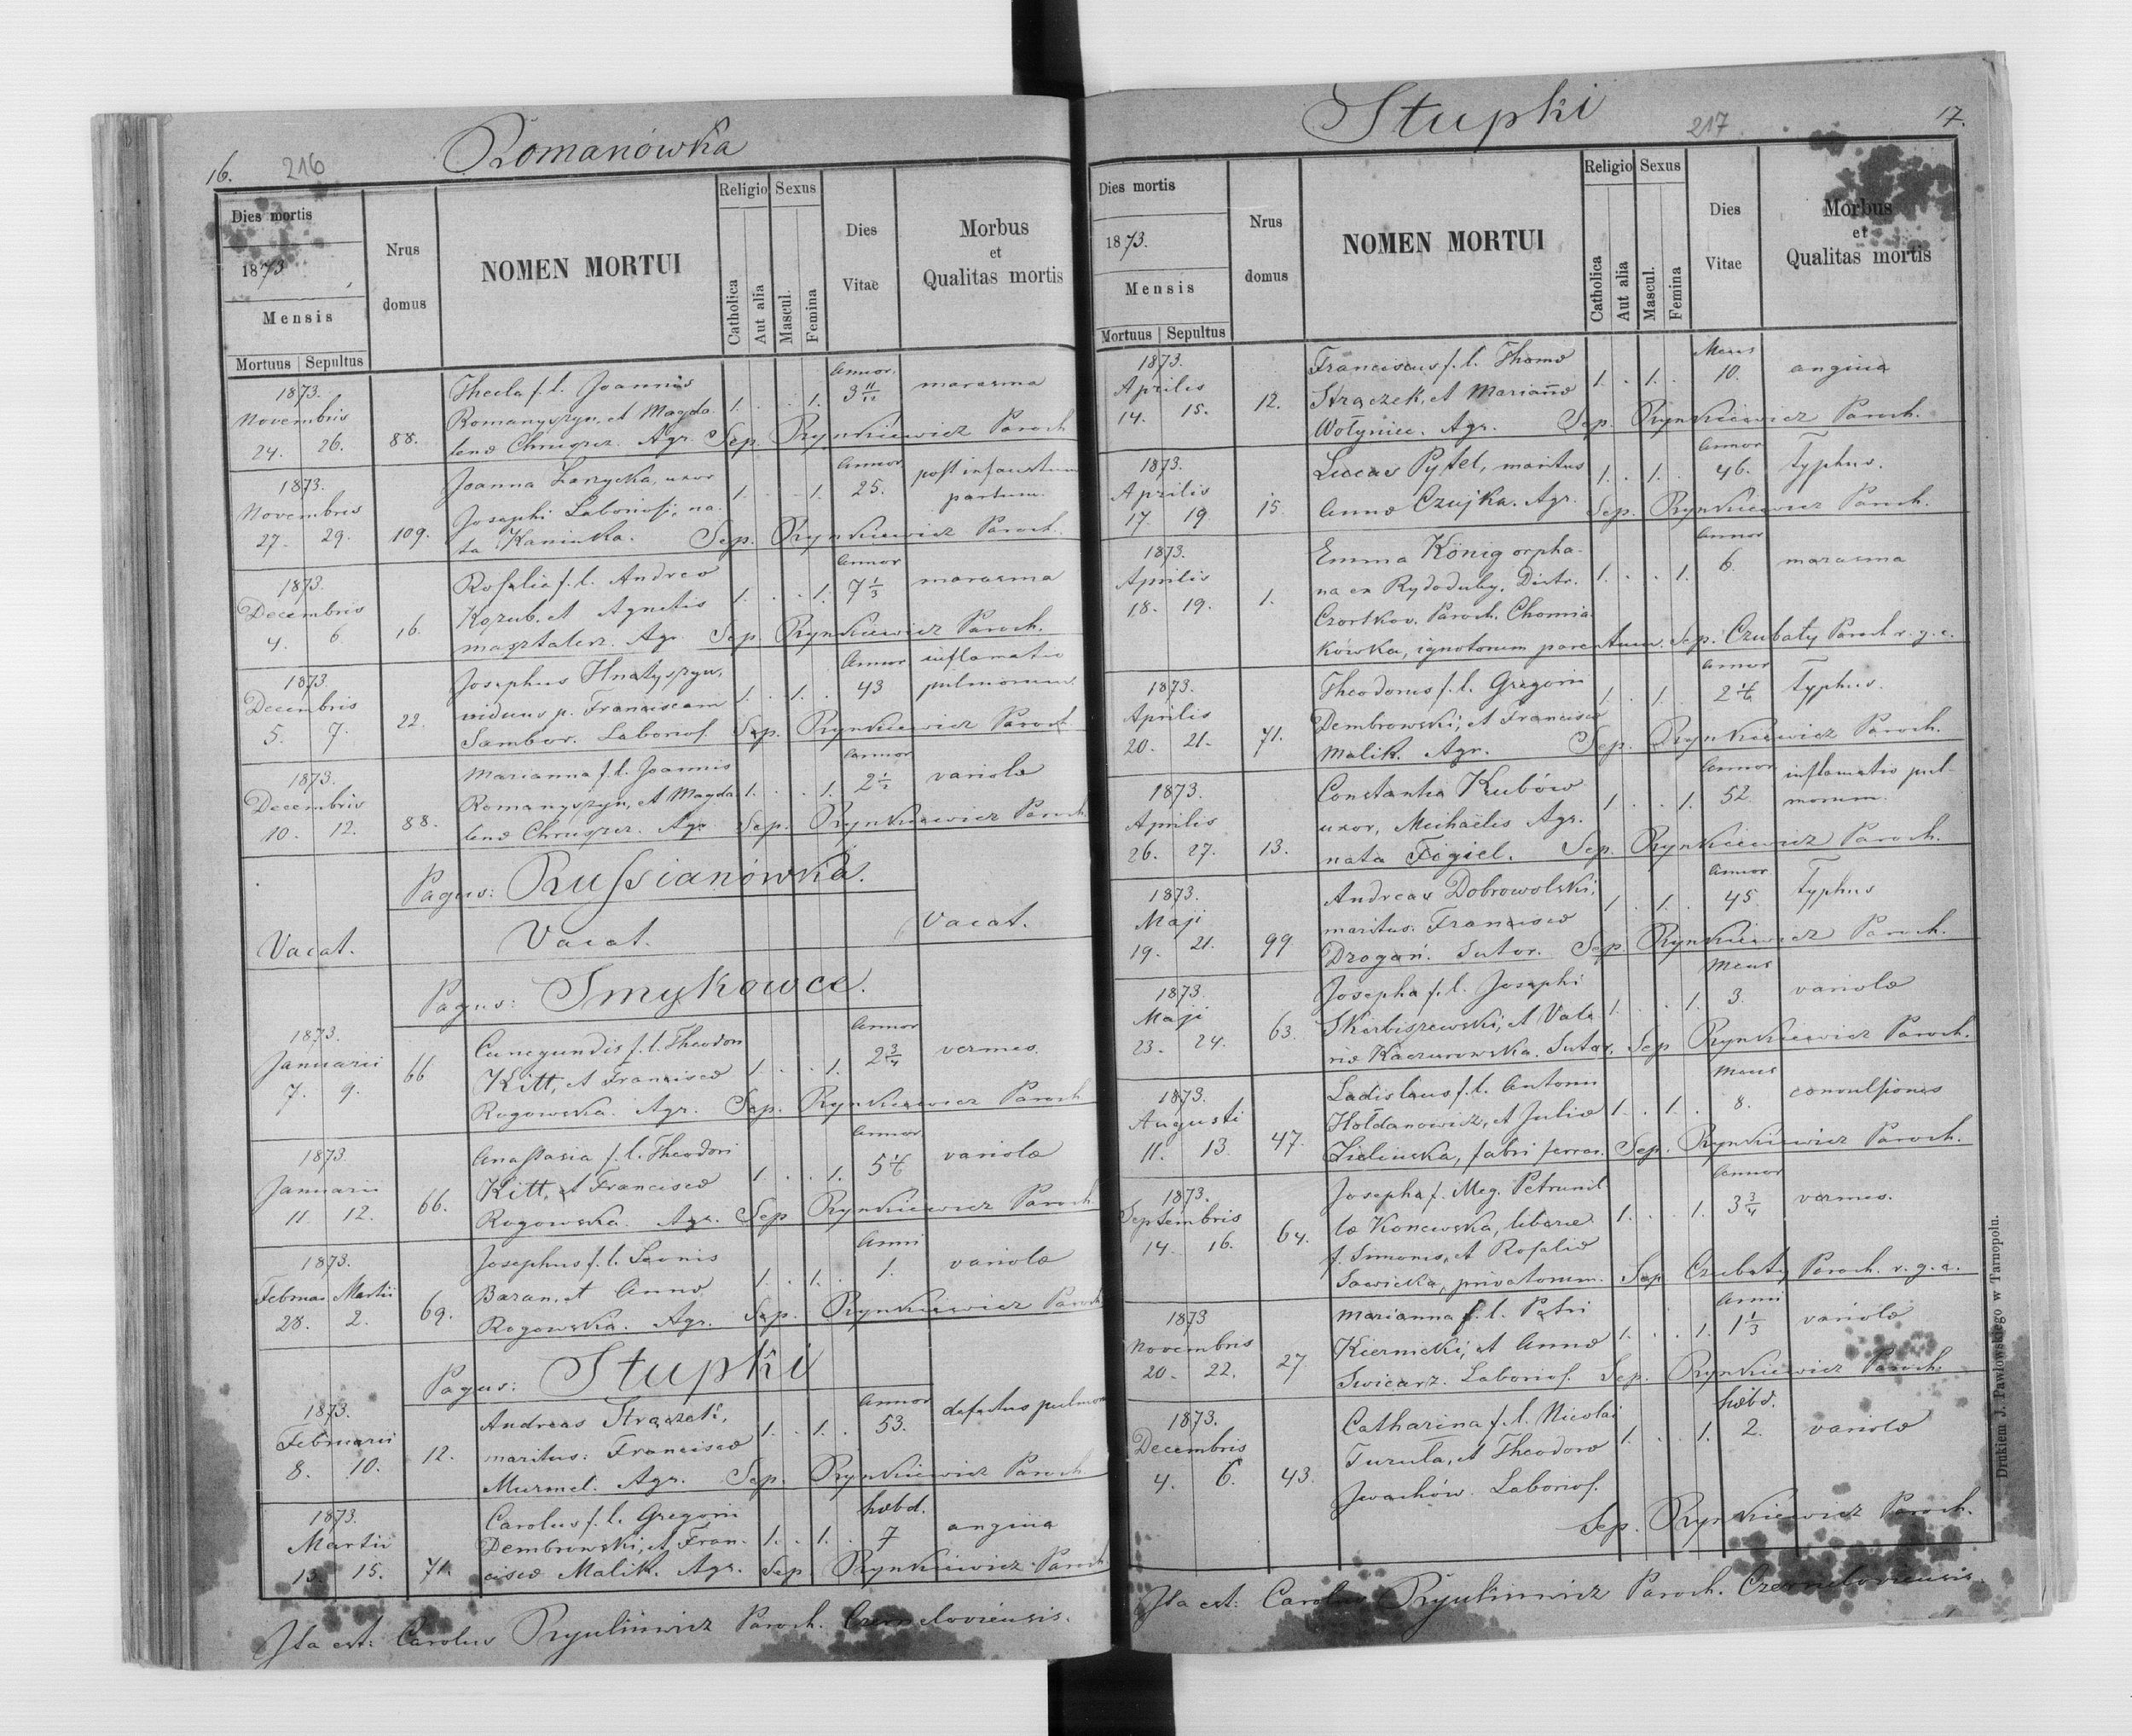 16. 216 Romanówka
Dies mortis
1873
Mensis
Mortuus Sepultus
Nrus domus
NOMEN MORTUI
Religio
Catholica
Aut alia
Sexus
Mascul.
Femina
Dies Vitae
Morbus
et
Qualitas mortis
1873. Thecla f. l. Joannis Annor.
Novembris Romanyszyn, et Magda- 1. . . 1. 3 11/12 marasma
24. 26. 88. lenæ Chruszcz. Agr. Sep. Rynkiewicz Paroch.
1873. Joanna Zarzycka, uxor Annor post infaustum
Novembris Josephi Laborios; na- 1. . . 1. 25. partum.
27. 29. 109. ta Kaminka. Sep. Rynkiewicz Paroch.
1873. Rosalia f. l. Andreæ Annor
Decembris Kozub, et Agnetis 1. . . 1. 7 1/3 marasma
4. 6 16. Masztalerz. Agr. Sep. Rynkiewicz Paroch.
1873 Josephus Hnatyszyn, Annor inflamatio
Decembris viduus p. Franciscam 1. . 1. . 43 pulmonum
5. 7. 22. Sambor. Laborios. Sep. Rynkiewicz Paroch
1873. Marianna f. l. Joannis Annor
Decembris Romanyszyn, et Magda- 1. . . 1. 2 1/2 variolæ
10. 12. 88. lenæ Chruszcz. Agr. Sep. Rynkiewicz Paroch
Pagus: Russianówka.
Vacat. Vacat. Vacat.
Pagus: Smykowce.
1873. Cunegundis f. l. Theodori Annor
Januarii Kitt, et Franciscæ 1. . . 1. 2 3/4 vermes.
7. 9. 66 Rogowska. Agr. Sep. Rynkiewicz Paroch
1873. Anastasia f. l. Theodori Annor
Januarii Kitt, et Franciscæ 1. . . 1. 5 1/6 variolæ
11. 12. 66. Rogowska. Agr. Sep Rynkiewicz Paroch
1873. Josephus f. l. Leonis Anni
Februar. Martii Baran, et Annæ 1. . 1. . 1. variolæ
28. 2. 69. Rogowska. Agr. Sep. Rynkiewicz Paroch
Pagus: Stupki
1873. Andreas Strączek, Annor
Februarii maritus: Franciscæ 1. . 1. . 53. defectus pulmon
8. 10. 12. Murmel. Agr. Sep. Rynkiewicz Paroch
1873. Carolus f. l. Gregorii hebd.
Martii Dembrowski, et Fran- 1. . 1. . 7 angina
13. 15. 71. ciscæ Malik. Agr. Sep Rynkiewicz Paroch.
Ita est: Carolus Rynkiewicz Paroch. Czerneloviensis.
Stupki 217 17.
Dies mortis
1873.
Mensis
Mortuus Sepultus
Nrus domus
NOMEN MORTUI
Religio
Catholica
Aut alia
Sexus
Mascul.
Femina
Dies Vitae
Morbus
et
Qualitas mortis
1873. Franciscus f. l. Thomæ Mens
Aprilis Strączek, et Mariannæ 1. . 1. . 10. angina
14. 15. 12. Wołyniec. Agr. Sep. Rynkiewicz Paroch.
1873. Lucas Pytel, maritus Annor
Aprilis Annæ Czujka. Agr. 1. . 1. . 46. Typhus.
17. 19 15. Sep. Rynkiewicz Paroch.
1873. Emma König orpha- Annor
Aprilis na ex Rydoduby, Distr. 1. . . 1. 6. marasma
18. 19. 1. Czortkov. Paroch. Chomia-
kówka, ignotorum parentum. Sep. Czubaty Paroch r. g. c.
1873. Theodorus f. l. Gregorii Annor
Aprilis Dembrowski, et Franciscæ 1. . 1. . 2 1/6 Typhus.
20. 21. 71. Malik. Agr. Sep. Rynkiewicz Paroch.
1873. Constantia Kubów Annor inflamatio pul-
Aprilis uxor, Michaëlis Agr. 1. . . 1. 52. monum.
26. 27. 13. nata Figiel. Sep. Rynkiewicz Paroch.
1873. Andreas Dobrowolski, Annor
Maji maritus: Franciscæ 1. . 1. . 45. Typhus
19. 21. 99. Drogoń. Sutor. Sep. Rynkiewicz Paroch.
1873. Josepha f. l. Josephi Mens
Maji Skerbiszewski, et Vale- 1. . . 1. 3. variolæ
23. 24. 63. riæ Kaczurowska. Sutor. Sep Rynkiewicz Paroch.
1873. Ladislaus f. l. Antonii Mens
Augusti Hołdanowicz, et Juliæ 1. . 1. . 8. convulsiones
11. 13. 47. Zielinska, fabri ferrar. Sep. Rynkiewicz Paroch.
1873. Josepha f. Meg. Petronil- Annor
Septembris læ Konewska, liberæ 1. . . 1. 3 3/4 vermes.
14. 16. 64. f. Simonis, et Rosaliæ
Sawicka, privatorum. Sep Czubaty Paroch. r. g. c.
1873 Marianna f. l. Petri Anni
Novembris Kiernicki, et Annæ 1. . . 1. 1 1/3 variolæ
20. 22. 27. Swicarz. Laborios. Sep. Rynkiewicz Paroch.
1873. Catharina f. l. Nicolai hebd.
Decembris Turula, et Theodoræ 1. . . 1. 2. variolæ
4. 6. 43. Iwachów. Laborios.
Sep. Rynkiewicz Paroch.
Ita est: Carolus Rynkiewicz Paroch. Czerneloviensis.
Drukiem J. Pawłowskiego w Tarnopolu.